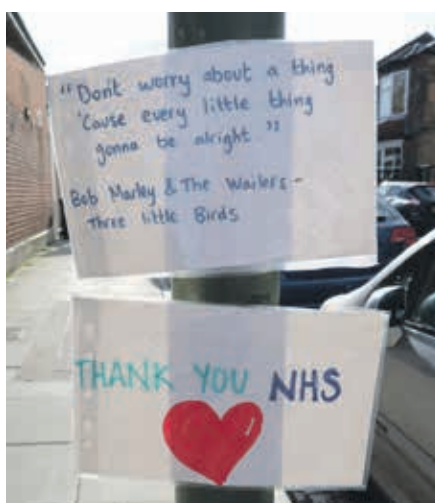 "Don't worry about a thing
'Cause every little thing
gonna be alright"
Bob Marley & The Wailers -
Three little Birds
THANK YOU NHS